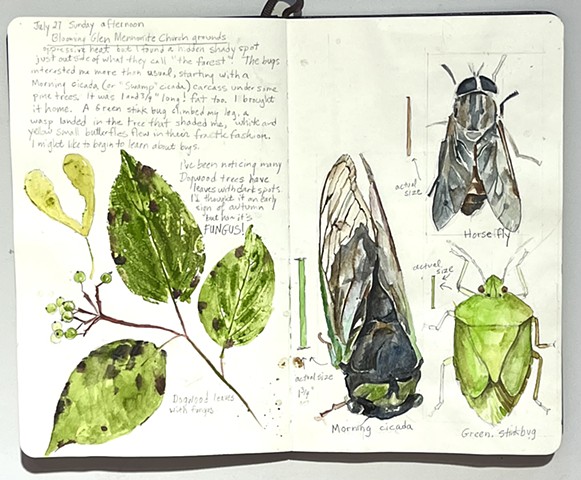 July 27 Sunday afternoon
Blooming Glen Mennonite Church grounds
oppressive heat but I found a hidden shady spot
just outside of what they call "the forest". The bugs
interested me more than usual, starting with a
Morning cicada (or "Swamp" cicada) carcass under some
pine trees. It was 1 and 3/4" long! fat too. I brought
it home. A Green stink bug climbed my leg, a
wasp landed in the tree that shaded me, white and
yellow small butterflies flew in their frantic fashion.
I might like to begin to learn about bugs.
I've been noticing many
Dogwood trees have
leaves with dark spots
I'd thought it an early
sign of autumn
but no it's
FUNGUS!
Dogwood leaves
with fungus
actual
size
Horse fly
actual
size
actual size
1 3/4"
Morning cicada
Green stinkbug